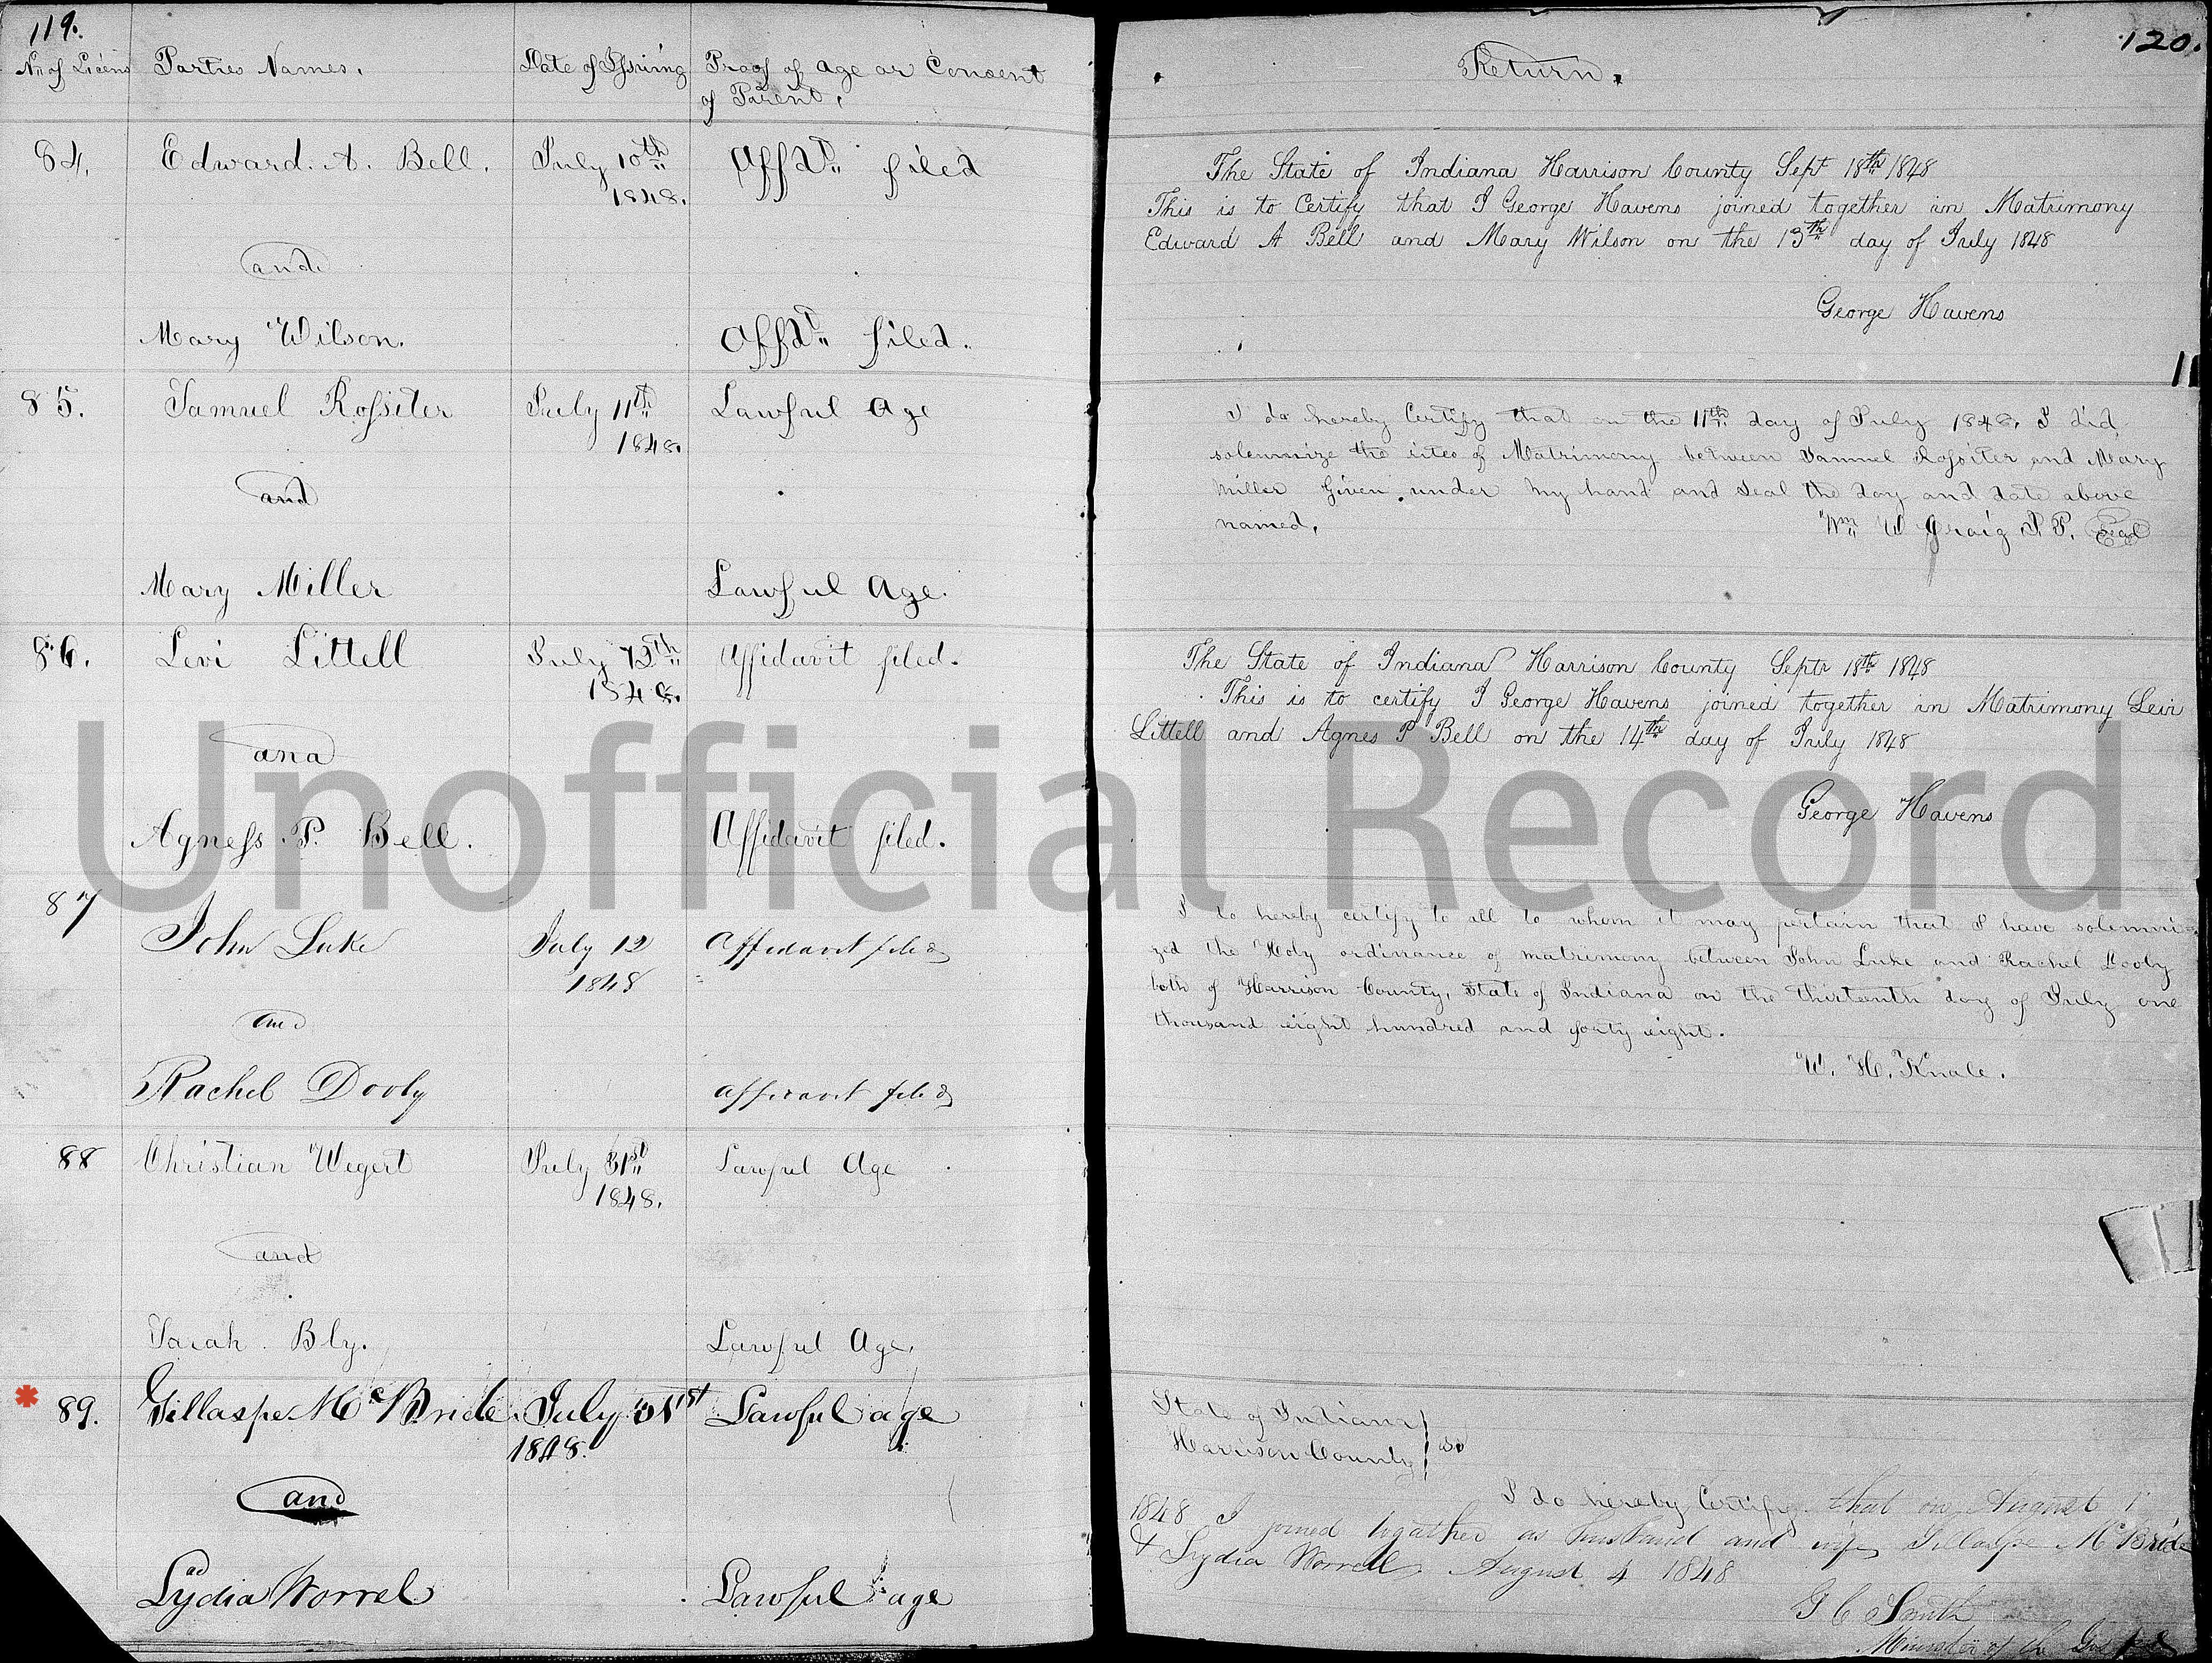 119.
No. of Licens Parties Names. Date of Issuing Proof of Age or Consent
of Parent.
84. Edward. A. Bell. July 10th Affdt filed
1848.
and
Mary Wilson. Affdt filed.
85. Samuel Rossiter July 11th Lawful Age
1848.
and
Mary Miller Lawful Age.
86. Levi Littell July 12th Affidavit filed.
1848.
and
Agness P. Bell. Affidavit filed.
87
John Luke July 12 Affidavit filed
1848
and
Rachel Dooly affidavit filed
88 Christian Wegert July 31st Lawful Age
1848.
and
Sarah Bly. Lawful Age.
* 89. Gillaspe McBride. July 31st Lawful age
1848.
and
Lydia Worrel Lawful age
120.
Return.
The State of Indiana Harrison County Sept 18th 1848
This is to Certify that I George Havens joined together in Matrimony
Edward A Bell and Mary Wilson on the 13th day of July 1848
George Havens
I do hereby Certify that on the 11th day of July 1848. I did
solemnize the rites of Matrimony between Samuel Rossiter and Mary
Miller Given under my hand and Seal the day and date above
named. Wm W Craig J.P. Seal
The State of Indiana Harrison County Septr 18th 1848
This is to certify I George Havens joined together in Matrimony Levi
Littell and Agnes P Bell on the 14th day of July 1848
George Havens
I do hereby certify to all to whom it may pertain that I have solemni-
zed the Holy ordinance of matrimony between John Luke and Rachel Dooly
both of Harrison County, State of Indiana on the thirteenth day of July one
thousand eight hundred and forty eight.
W. H. Knale.
State of Indiana
Harrison County ss
I do hereby Certify that on August 1
1848 I joined together as husband and wife Gillaspe McBride
& Lydia Worrell. August 4 1848
G C Smith
Minister of the Gospel
Unofficial Record